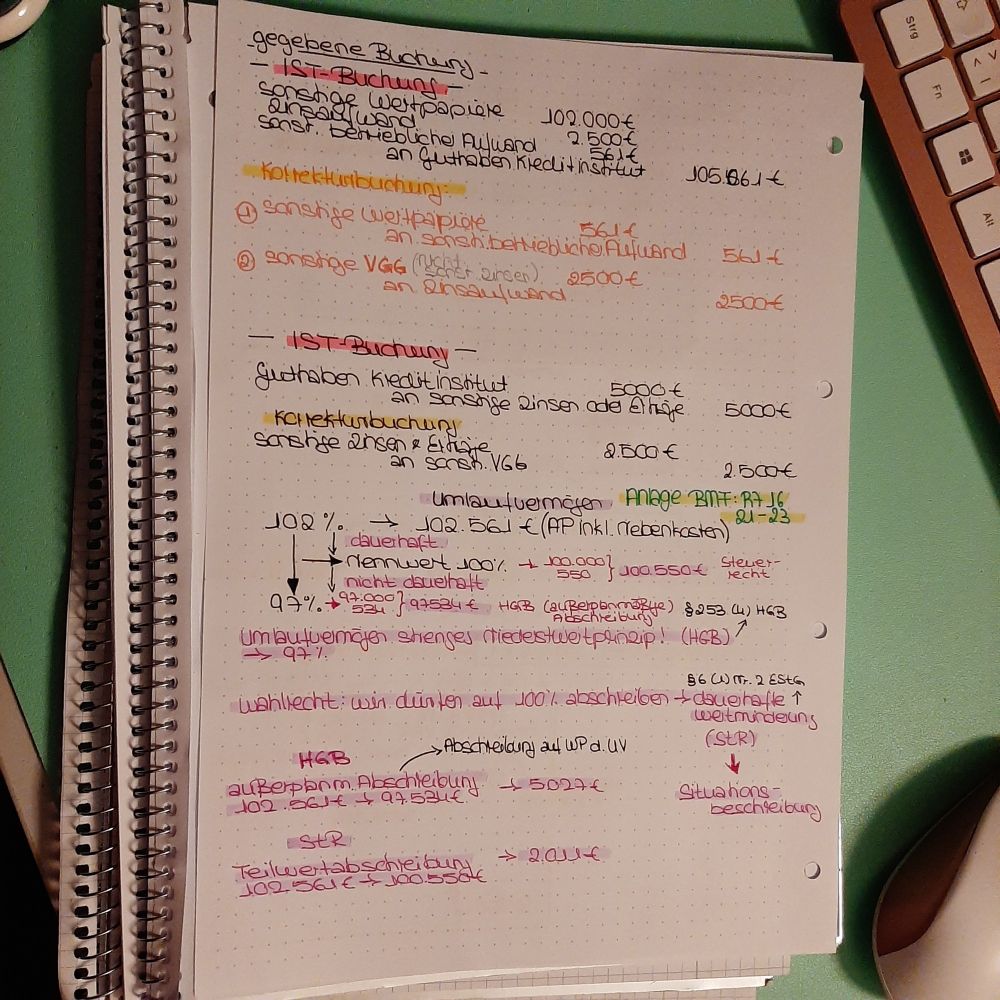 gegebene Buchung
- IST-Buchung -
sonstige Wertpapiere 102.000€
Zinsaufwand 2.500€
sonst. betrieblicher Aufwand 561€
an Guthaben Kreditinstitut 105.061€
Korrekturbuchung:
① sonstige Wertpapiere 561€
an sonst. betrieblicher Aufwand 561€
② sonstige VGG (nicht sonst. Zinsen) 2500€
an Zinsaufwand 2500€
- IST-Buchung -
Guthaben Kreditinstitut 5000€
an sonstige Zinsen oder Erträge 5000€
Korrekturbuchung
sonstige Zinsen & Erträge 2.500€
an sonst. VGG 2.500€
Umlaufvermögen Anlage BMF: R7 16
21-23
102% → 102.561€ (AP inkl. Nebenkosten)
dauerhaft
→ Nennwert 100% → 100.000 } 100.550€ Steuer-
550 recht
nicht dauerhaft
97% → 97.000 } 97534€ HGB (außerplanmäßige) §253 (4) HGB
534 Abschreibung
Umlaufvermögen strenges Niederstwertprinzip! (HGB)
→ 97%
§6 (1) Nr. 2 EStG
Wahlrecht: wir dürfen auf 100% abschreiben → dauerhafte ↑
Wertminderung
(StR)
HGB → Abschreibung auf WP d. UV
außerplanm. Abschreibung → 5027€
102.561€ → 97534€
Situations-
beschreibung
StR
Teilwertabschreibung → 2.011€
102.561€ → 100.550€
Strg
Fn
Alt